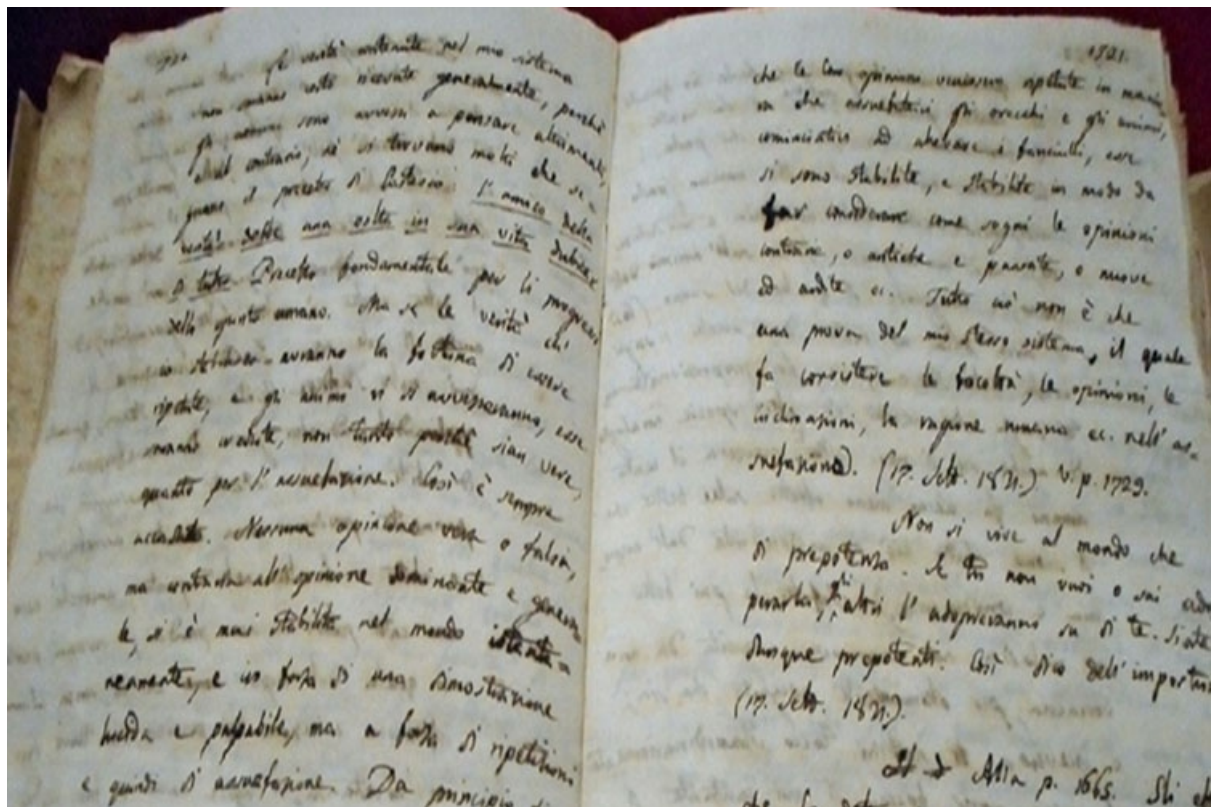 1720
Le verità contenute nel mio sistema
non saranno certo ricevute generalmente, perchè
gli uomini sono avvezzi a pensare altrimenti,
e al contrario, nè si trovano molti che se-
guano il precetto di Cartesio: l'amico della
verità debbe una volta in sua vita dubitar
di tutto. Precetto fondamentale per li progressi
dello spirito umano. Ma se le verità ch'
io stabilisco avranno la fortuna di essere
ripetute, e gli animi vi si avvezzeranno, esse
saranno credute, non tanto perchè sian vere,
quanto per l'assuefazione. Così è sempre
accaduto. Nessuna opinione vera o falsa,
ma contraria all'opinione dominante e genera-
le, si è mai stabilita nel mondo istanta-
neamente, e in forza di una dimostrazione
lucida e palpabile, ma a forza di ripetizioni
e quindi di assuefazione. Da principio
1721
che le loro opinioni venissero ripetute in manie-
ra che assuefattivi gli orecchi e gli animi,
cominciatisi ad allevare i fanciulli, esse
si sono stabilite, e stabilite in modo da
far considerare come sogni le opinioni
contrarie, o antiche e passate, o nuove
ed ardite ec. Tutto ciò non è che
una prova del mio stesso sistema, il quale
fa consistere le facoltà, le opinioni, le
inclinazioni, la ragione umana ec. nell'as-
suefazione. (17. Sett. 1821.) v. p. 1729.
Non si vive al mondo che
di prepotenza. Se tu non vuoi o sai ado-
perarla, gli altri l'adopreranno su di te. Siate
dunque prepotenti. Così dico dell'impostura
(17. Sett. 1821.).
Alla p. 1665. Gli